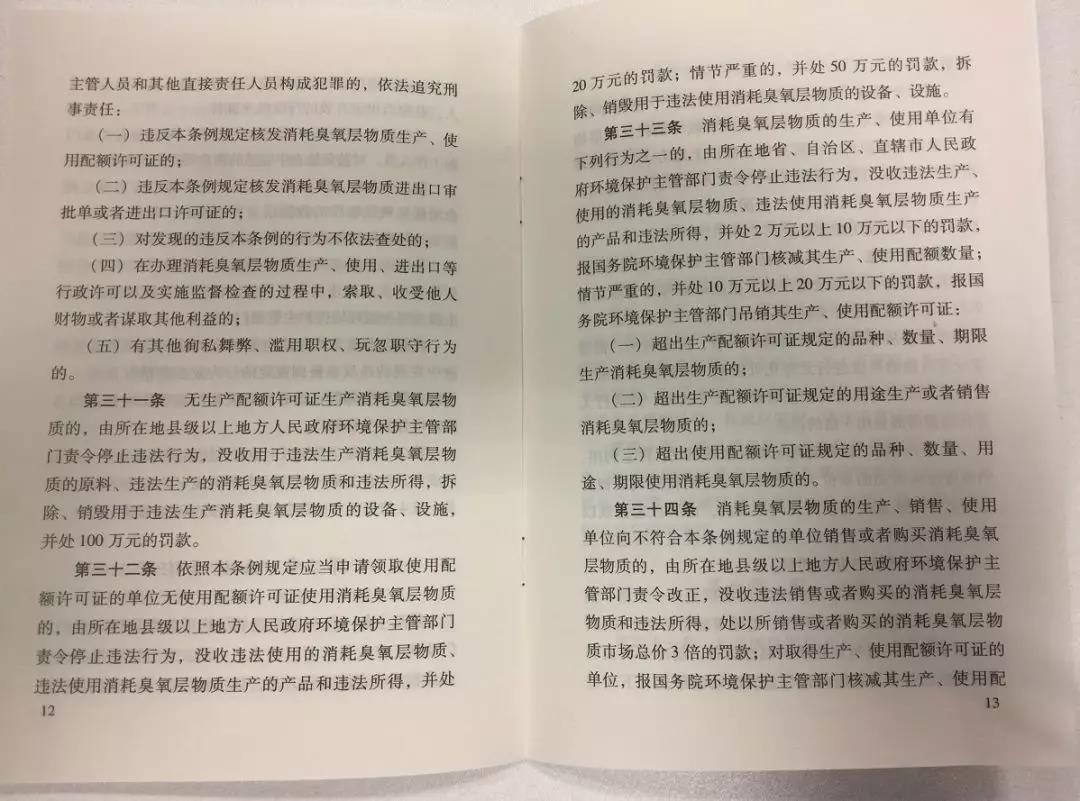 主管人员和其他直接责任人员构成犯罪的，依法追究刑
事责任：
（一）违反本条例规定核发消耗臭氧层物质生产、使
用配额许可证的；
（二）违反本条例规定核发消耗臭氧层物质进出口审
批单或者进出口许可证的；
（三）对发现的违反本条例的行为不依法查处的；
（四）在办理消耗臭氧层物质生产、使用、进出口等
行政许可以及实施监督检查的过程中，索取、收受他人
财物或者谋取其他利益的；
（五）有其他徇私舞弊、滥用职权、玩忽职守行为
的。
第三十一条　无生产配额许可证生产消耗臭氧层物
质的，由所在地县级以上地方人民政府环境保护主管部
门责令停止违法行为，没收用于违法生产消耗臭氧层物
质的原料、违法生产的消耗臭氧层物质和违法所得，拆
除、销毁用于违法生产消耗臭氧层物质的设备、设施，
并处100万元的罚款。
第三十二条　依照本条例规定应当申请领取使用配
额许可证的单位无使用配额许可证使用消耗臭氧层物质
的，由所在地县级以上地方人民政府环境保护主管部门
责令停止违法行为，没收违法使用的消耗臭氧层物质、
违法使用消耗臭氧层物质生产的产品和违法所得，并处
12
20万元的罚款；情节严重的，并处50万元的罚款，拆
除、销毁用于违法使用消耗臭氧层物质的设备、设施。
第三十三条　消耗臭氧层物质的生产、使用单位有
下列行为之一的，由所在地省、自治区、直辖市人民政
府环境保护主管部门责令停止违法行为，没收违法生产、
使用的消耗臭氧层物质、违法使用消耗臭氧层物质生产
的产品和违法所得，并处2万元以上10万元以下的罚款，
报国务院环境保护主管部门核减其生产、使用配额数量；
情节严重的，并处10万元以上20万元以下的罚款，报国
务院环境保护主管部门吊销其生产、使用配额许可证：
（一）超出生产配额许可证规定的品种、数量、期限
生产消耗臭氧层物质的；
（二）超出生产配额许可证规定的用途生产或者销售
消耗臭氧层物质的；
（三）超出使用配额许可证规定的品种、数量、用
途、期限使用消耗臭氧层物质的。
第三十四条　消耗臭氧层物质的生产、销售、使用
单位向不符合本条例规定的单位销售或者购买消耗臭氧
层物质的，由所在地县级以上地方人民政府环境保护主
管部门责令改正，没收违法销售或者购买的消耗臭氧层
物质和违法所得，处以所销售或者购买的消耗臭氧层物
质市场总价3倍的罚款；对取得生产、使用配额许可证的
单位，报国务院环境保护主管部门核减其生产、使用配
13